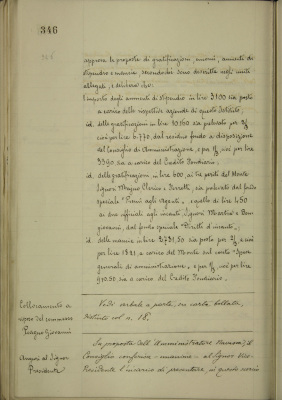 346
approva le proposte di gratificazioni, aumenti di
stipendio e mancie secondo
allegati, e delibera che:
l'importo degli aumenti di stipendio in lire 3100 sia posto
a carico delle rispettive aziende di questo Istituto,
id. delle gratificazioni in lire 10.160 sia prelevato per 2/3
cioè per lire 6.770, dal residuo fondo a disposizione
del Consiglio di Amministrazione, e per 1/3 cioè per lire
3390 sia a carico del Credito Fondiario,
id. delle gratificazioni in lire 600, ai periti del Monte
Signori e Ferretti, sia prelevato dal fondo
speciale "Premi agli Agenti", e quello di lire 450
ai due ufficiali agli incanti Signori e Bon
giovanni, dal fondo speciale "Diritti d'incanti",
id. delle mancie in lire 2731,50 sia posto per 2/3 e cioè
per lire 1821 a carico del Monte sul conto "Spese
generali di amministrazione", e per 1/3 cioè per lire
910.50 sia a carico del Credito Fondiario.
Collocamento a
riposo del commesso
Giovanni
Vedi verbale a parte, su carta bollata,
distinto col n. 18.
Auguri al Signor
Presidente
Su proposta dell'Amministratore il
Consiglio conferisce unanime al Signor Vice-
Presidente l'incarico di presentare, in questo